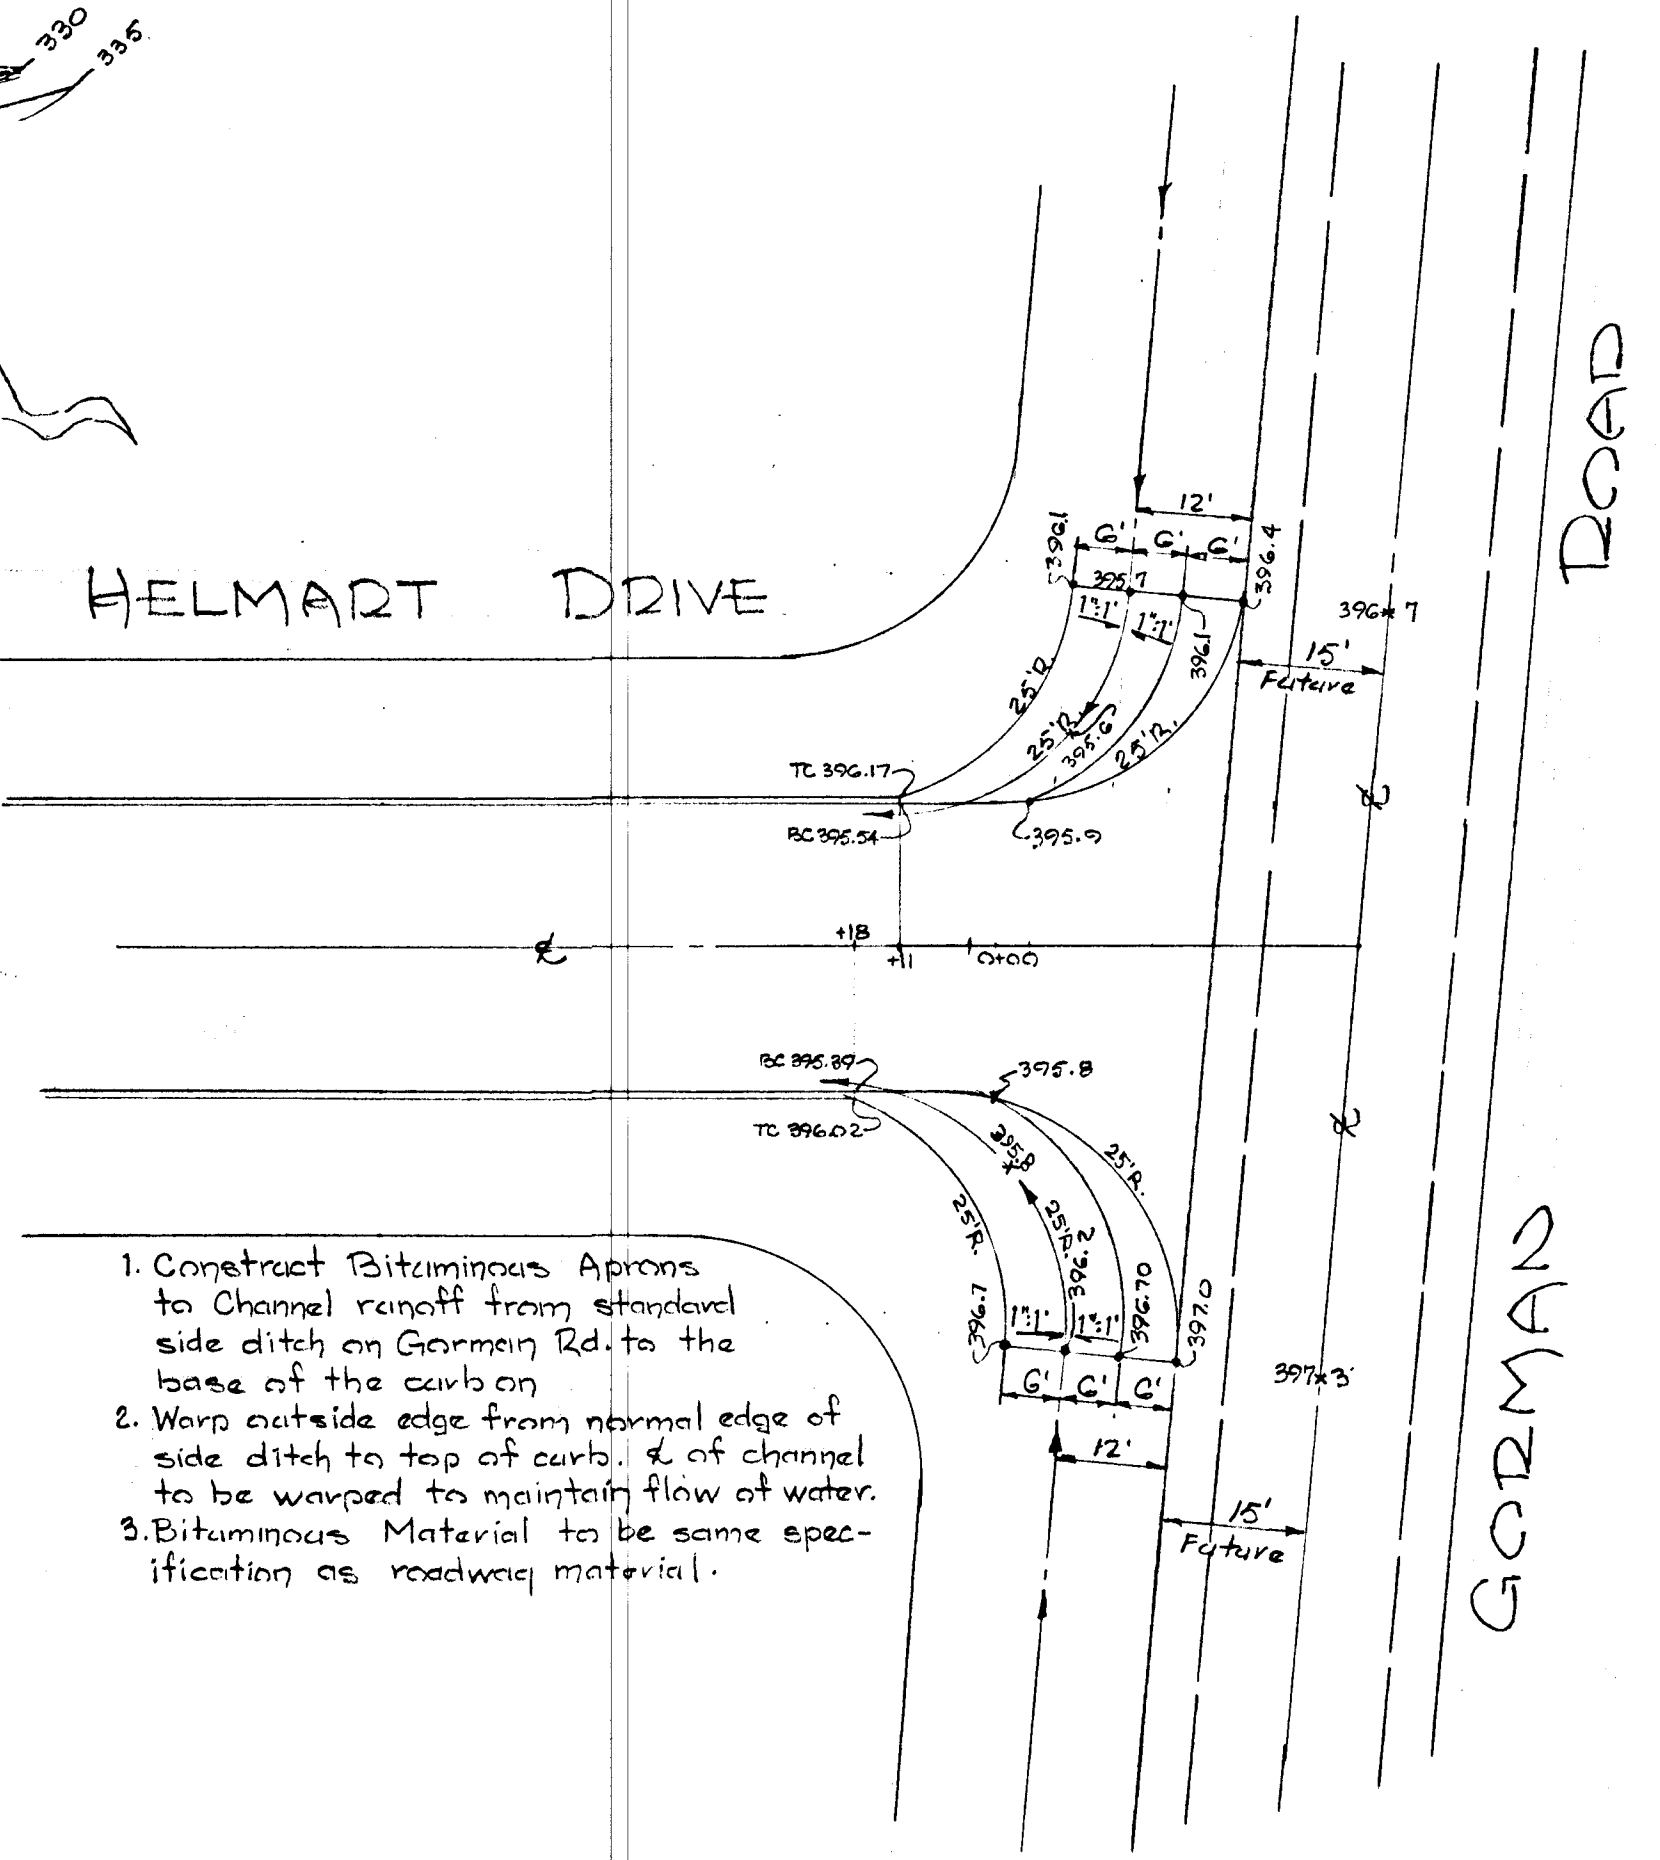 330
335
HELMART DRIVE
ROAD
GORMAN
12'
6' 6' 6'
396.1
395.7
396.4
1":1'
1":1'
396.1
396.7
15'
Future
25'R.
25'R.
395.6
25'R.
TC 396.17
BC 395.54
395.9
℄
℄
+18
+11
0+00
℄
BC 395.39
395.8
TC 396.02
395.8
25'R.
25'R.
25'R.
396.2
396.7
1":1'
1":1'
396.70
397.0
397.3
6' 6' 6'
12'
15'
Future
1. Construct Bituminous Aprons
to Channel runoff from standard
side ditch on Gorman Rd. to the
base of the curb on
2. Warp outside edge from normal edge of
side ditch to top of curb. ℄ of channel
to be warped to maintain flow of water.
3. Bituminous Material to be same spec-
ification as roadway material.